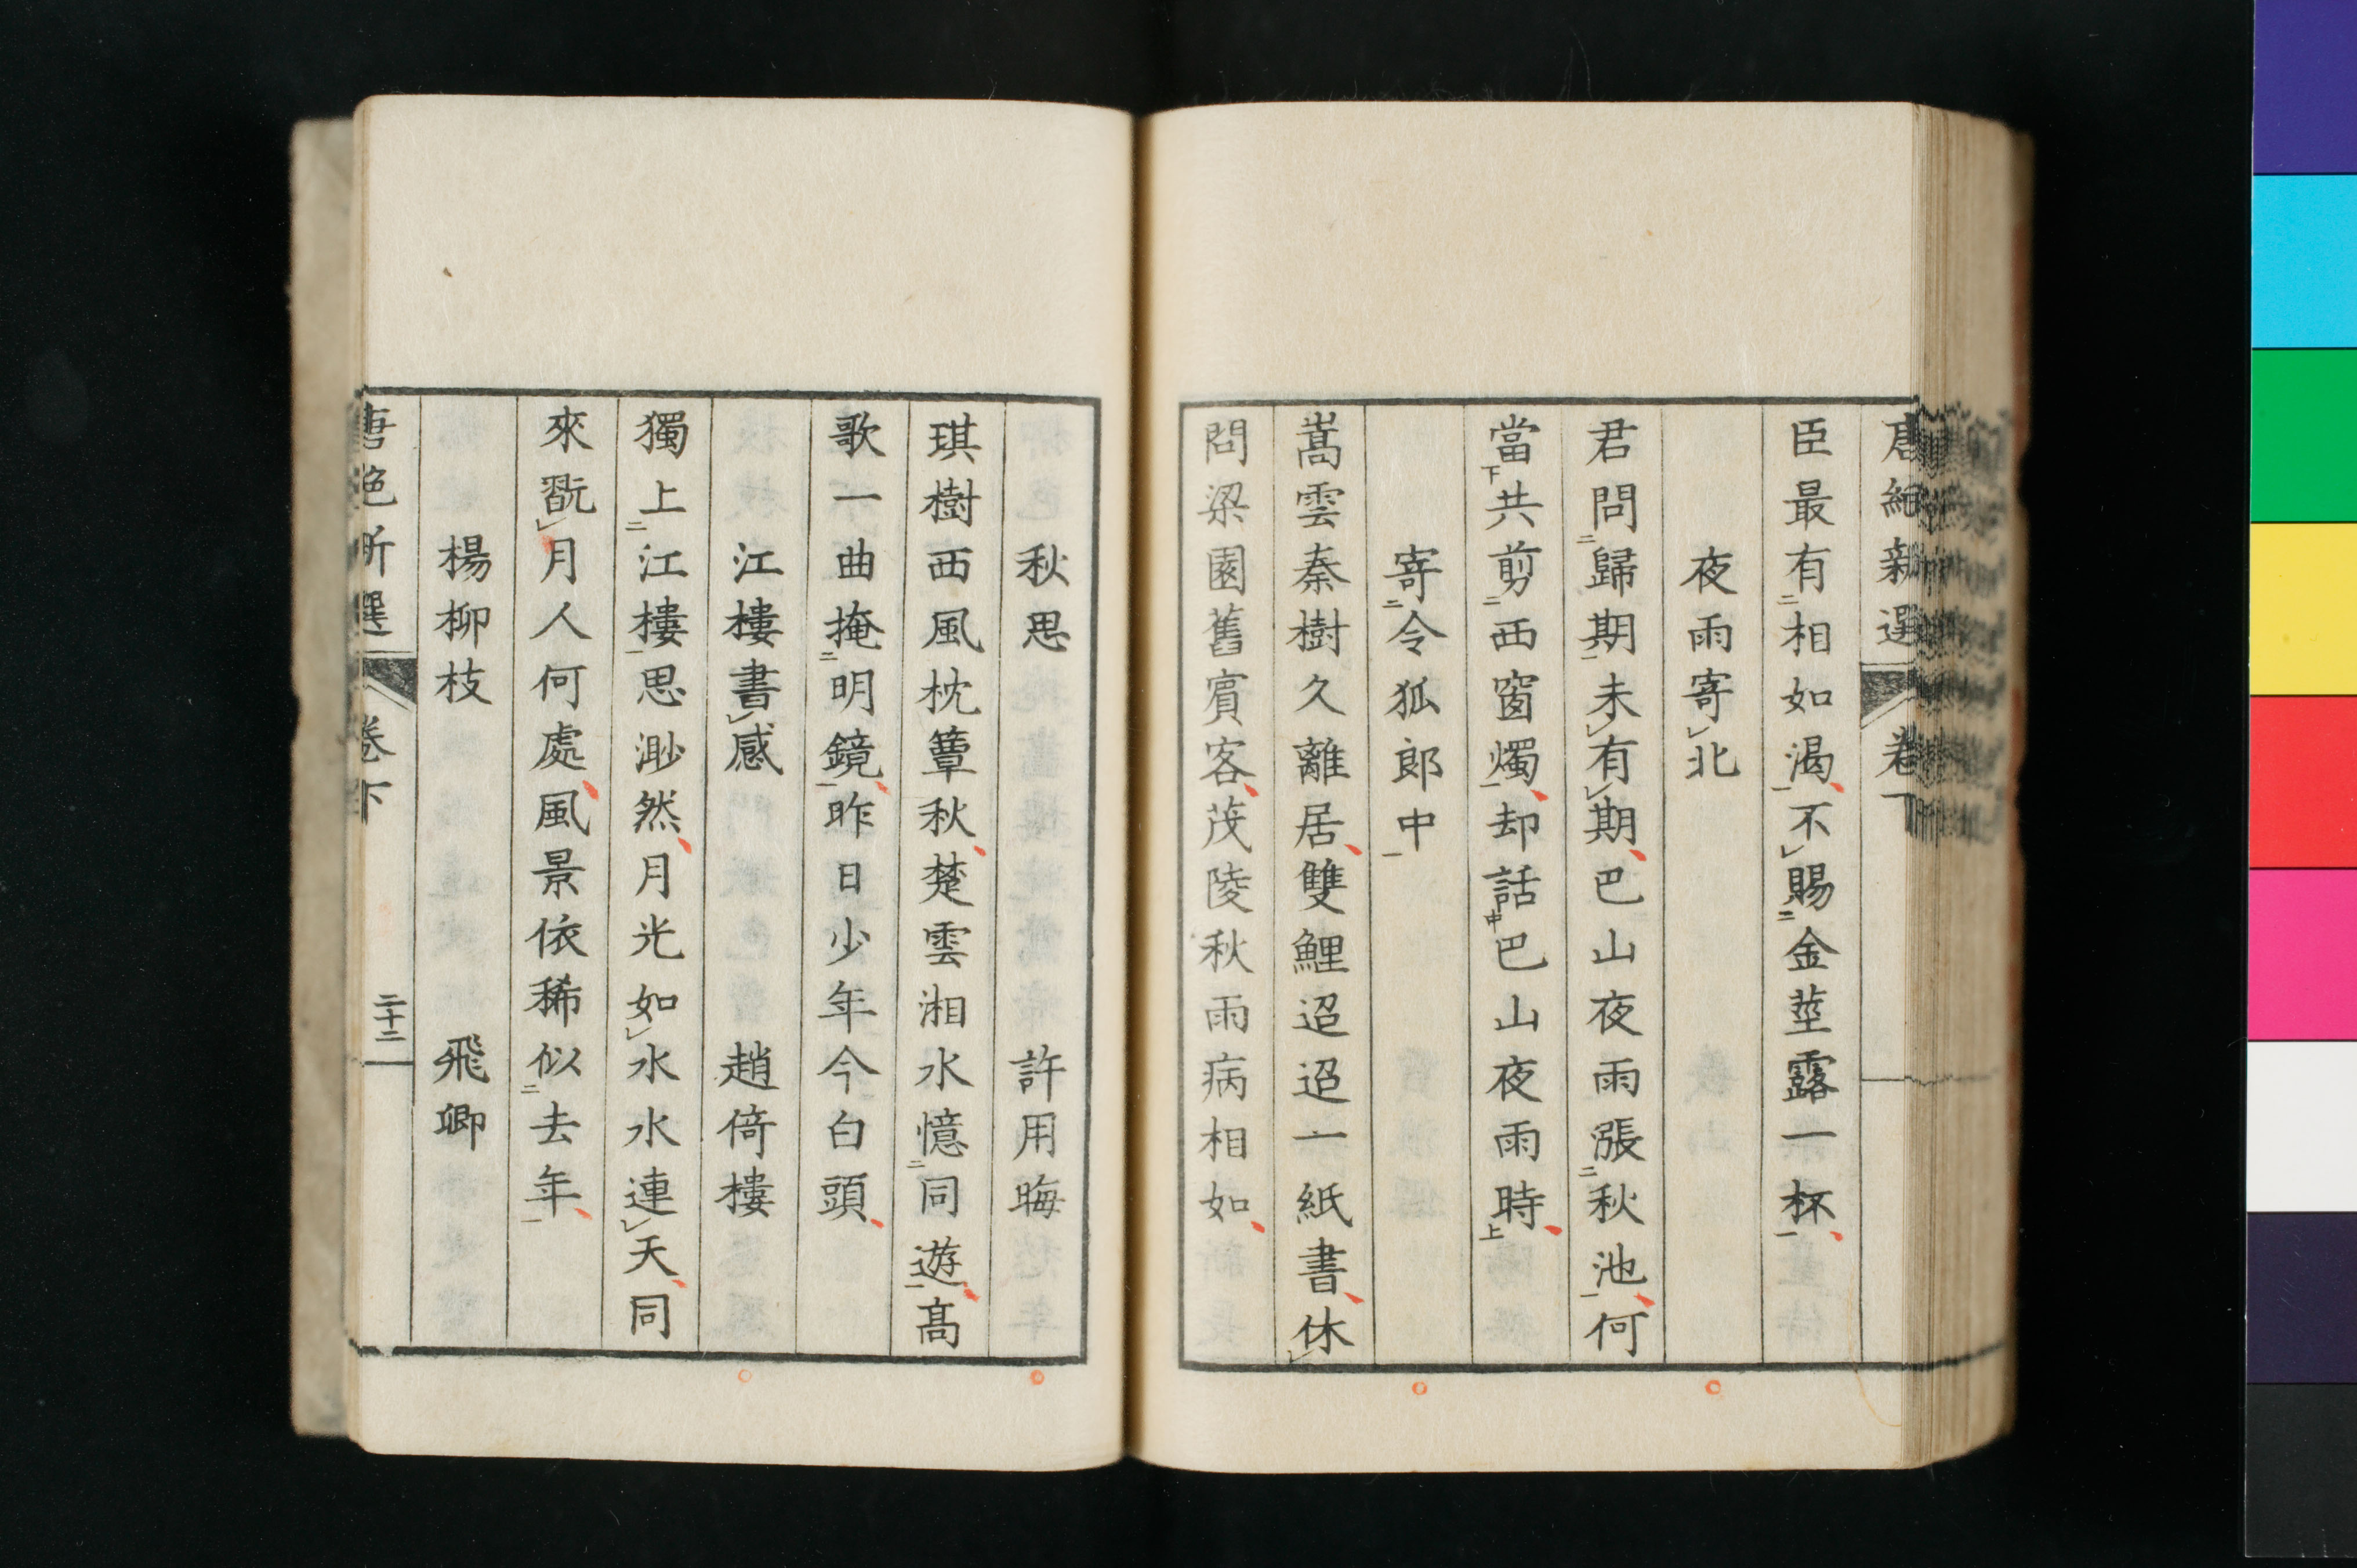 唐絶新選 卷下
臣最有相如渴不賜金莖露一杯
夜雨寄北
君問歸期未有期巴山夜雨漲秋池何
當共剪西窗燭却話巴山夜雨時
寄令狐郎中
嵩雲秦樹久離居雙鯉迢迢一紙書休
問梁園舊賓客茂陵秋雨病相如
秋思 許用晦
琪樹西風枕簟秋楚雲湘水憶同遊高
歌一曲掩明鏡昨日少年今白頭
江樓書感 趙倚樓
獨上江樓思渺然月光如水水連天同
來翫月人何處風景依稀似去年
楊柳枝 飛卿
唐絶新選 卷下 二十二